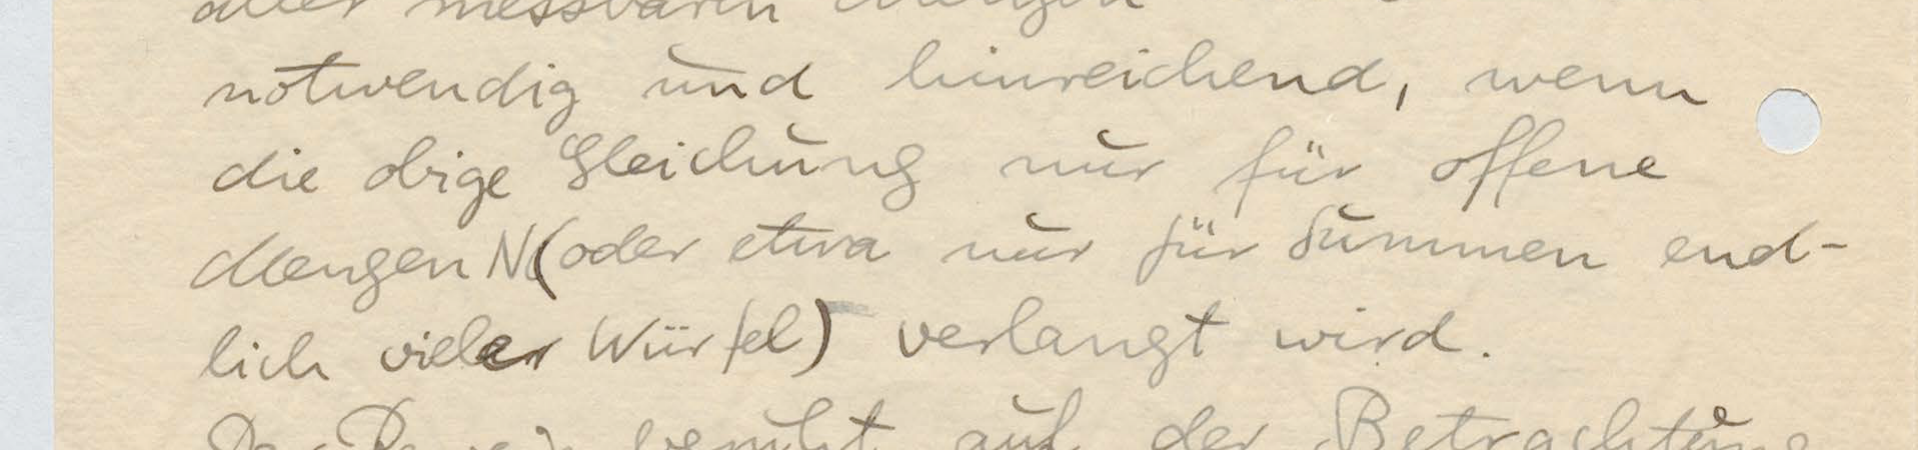 aller messbaren Mengen
notwendig und hinreichend, wenn
die obige Gleichung nur für offene
Mengen N (oder etwa nur für Summen end-
lich vieler Würfel) verlangt wird.
Der Beweis beruht auf der Betrachtung